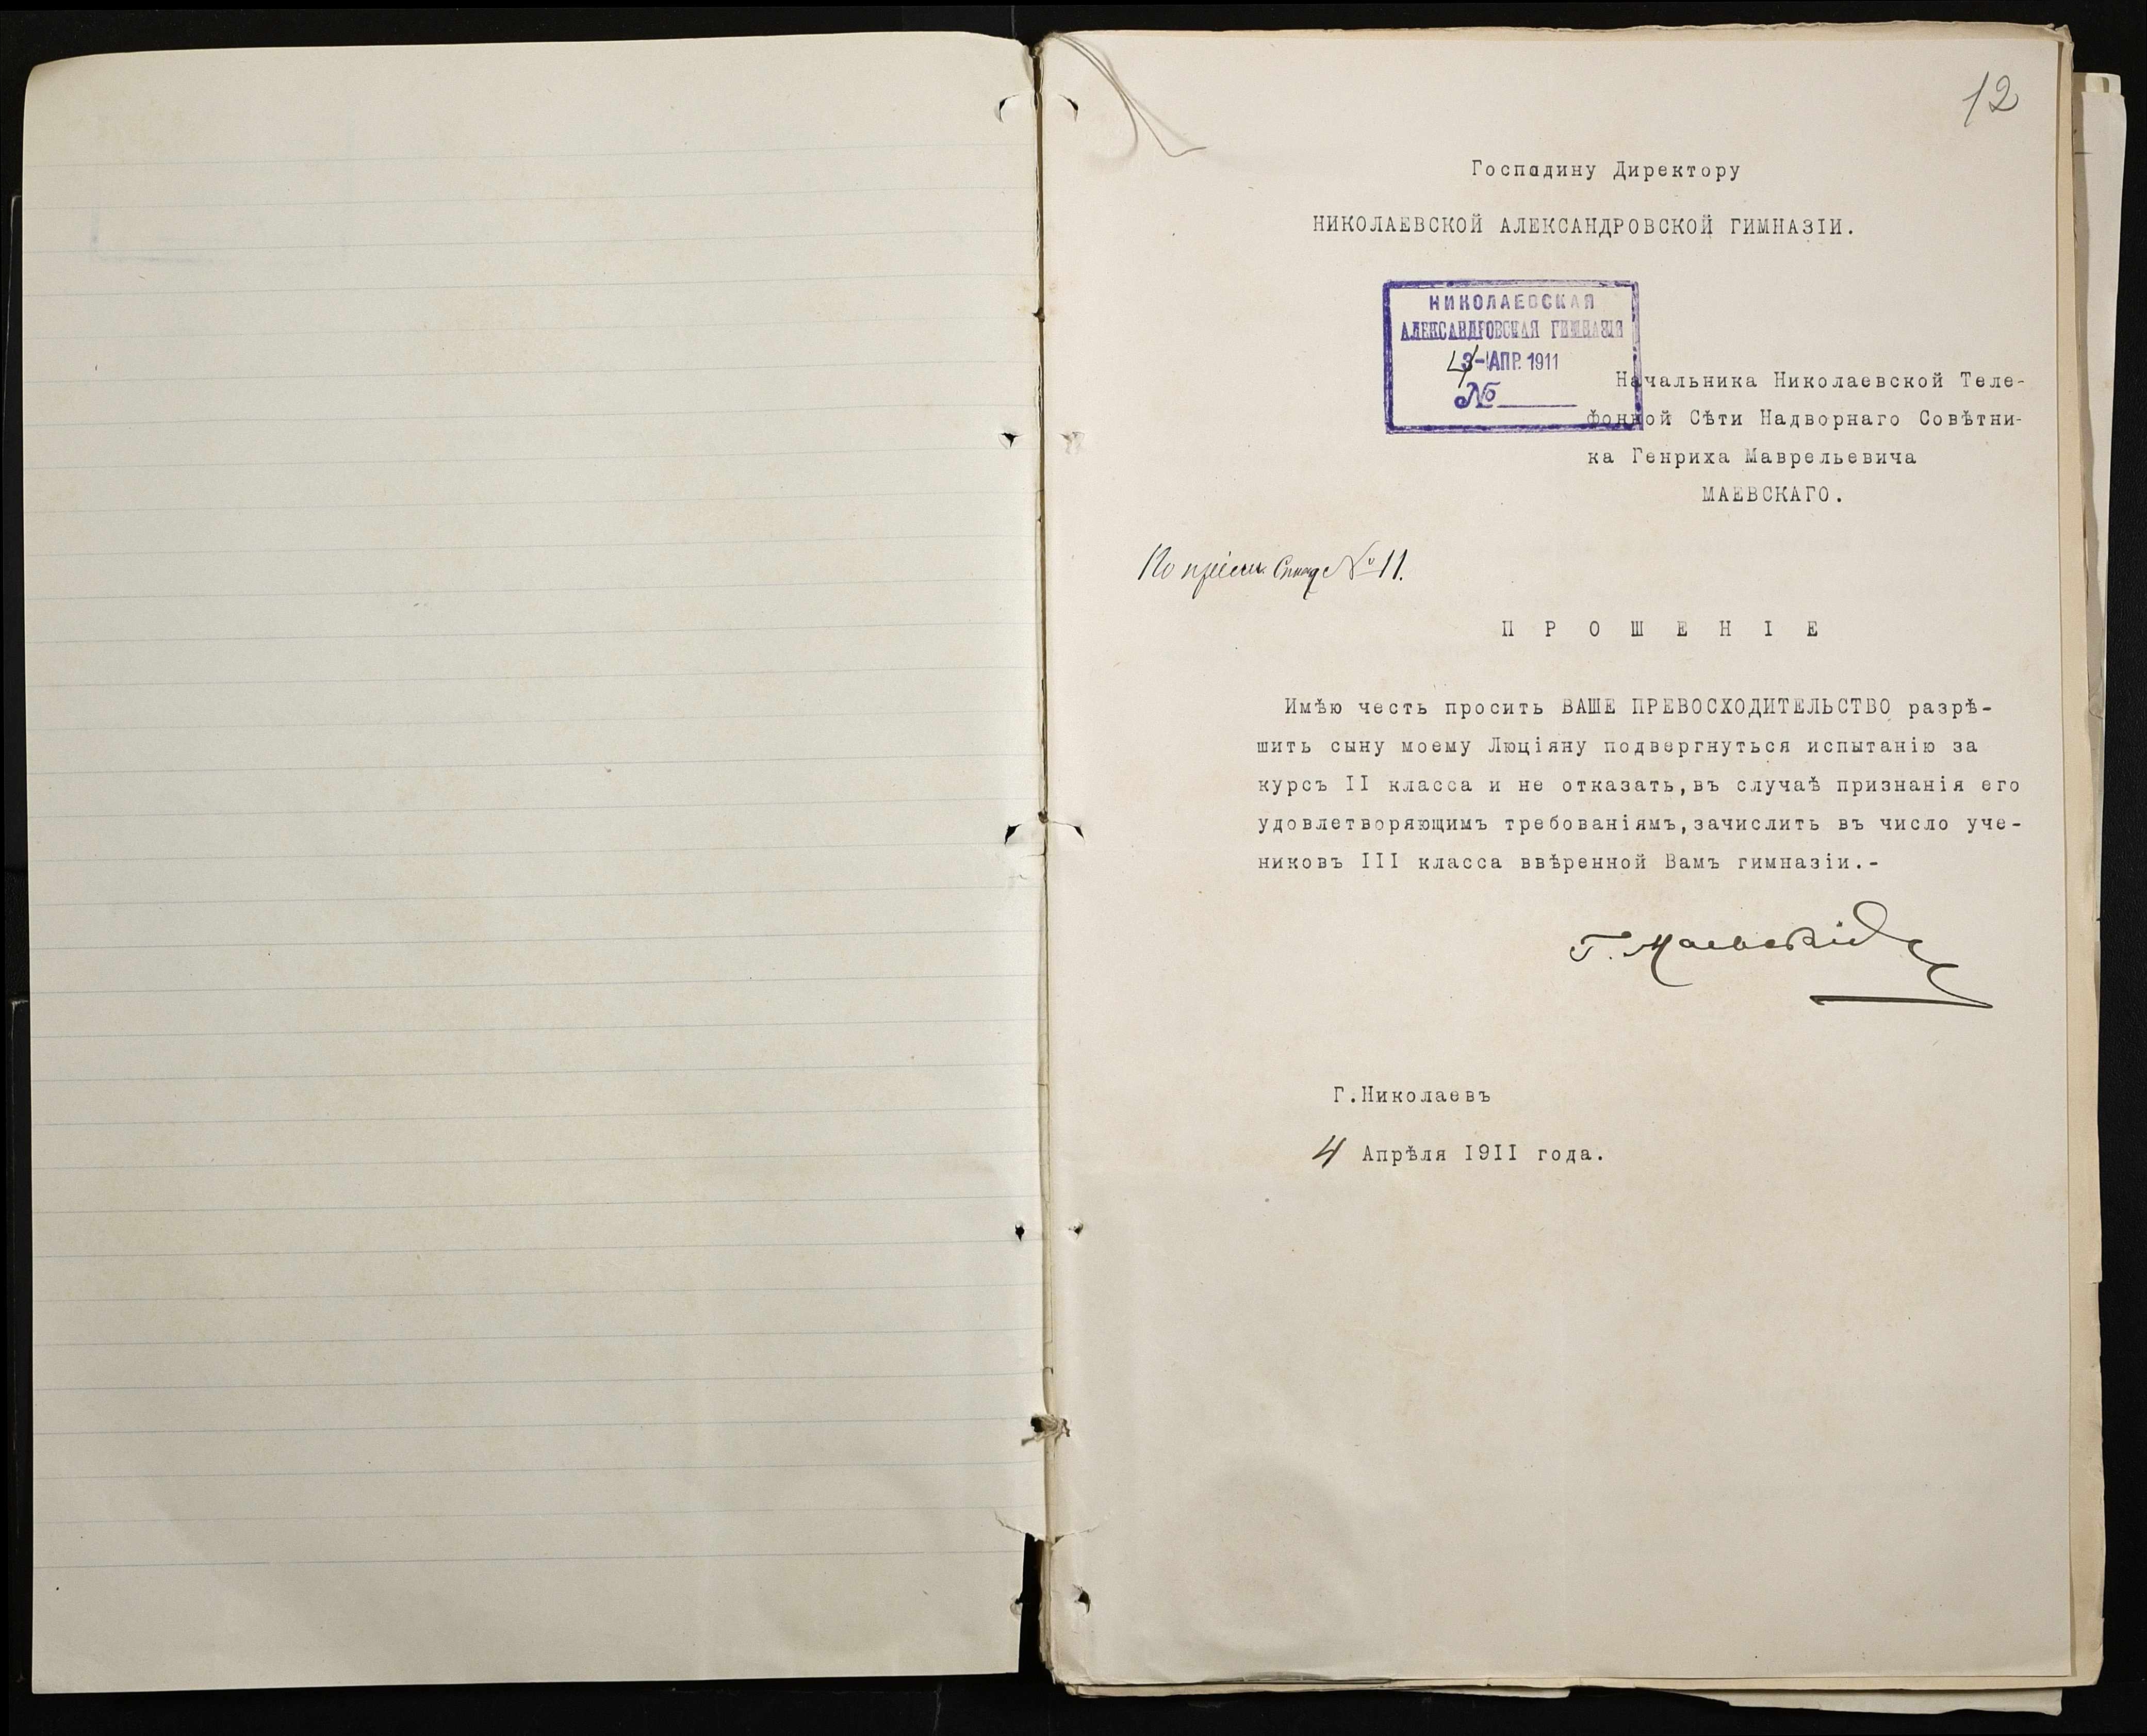 12
Господину Директору
НИКОЛАЕВСКОЙ АЛЕКСАНДРОВСКОЙ ГИМНАЗІИ.
НИКОЛАЕВСКАЯ
АЛЕКСАНДРОВСКАЯ ГИМНАЗІЯ
4 АПР. 1911
№
Начальника Николаевской Теле-
фонной Сѣти Надворнаго Совѣтни-
ка Генриха Маврельевича
МАЕВСКАГО.
По пріемн. № 11.
П Р О Ш Е Н І Е
Имѣю честь просить ВАШЕ ПРЕВОСХОДИТЕЛЬСТВО разрѣ-
шить сыну моему Люціяну подвергнуться испытанію за
курсъ II класса и не отказать,въ случаѣ признанія его
удовлетворяющимъ требованіямъ,зачислить въ число уче-
никовъ III класса ввѣренной Вамъ гимназіи.-
Г. Маевскій
Г.Николаевъ
4 Апрѣля 1911 года.